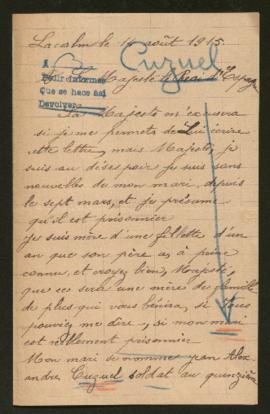 Lacalm le 14 août 1915.
Cuzuel
A
Sa Majesté le Roi d'Espagne
Pedir informes
Que se hace así
Devolver
Sa Majesté m'excusera
si je me permets de Lui écrire
cette lettre, mais Majesté, je
suis au désespoir je suis sans
nouvelles de mon mari, depuis
le sept mars, et je présume
qu'il est prisonnier
Je suis mère d'une fillette d'un
an que son père as à peine
connue, et croyez bien, Majesté,
que ce sera une mère de famille
de plus qui vous bénira, si Vous
pouviez me dire, si mon mari
est réellement prisonnier.
Mon mari se nomme Jean Alex-
andre Cuzuel soldat au quinzième